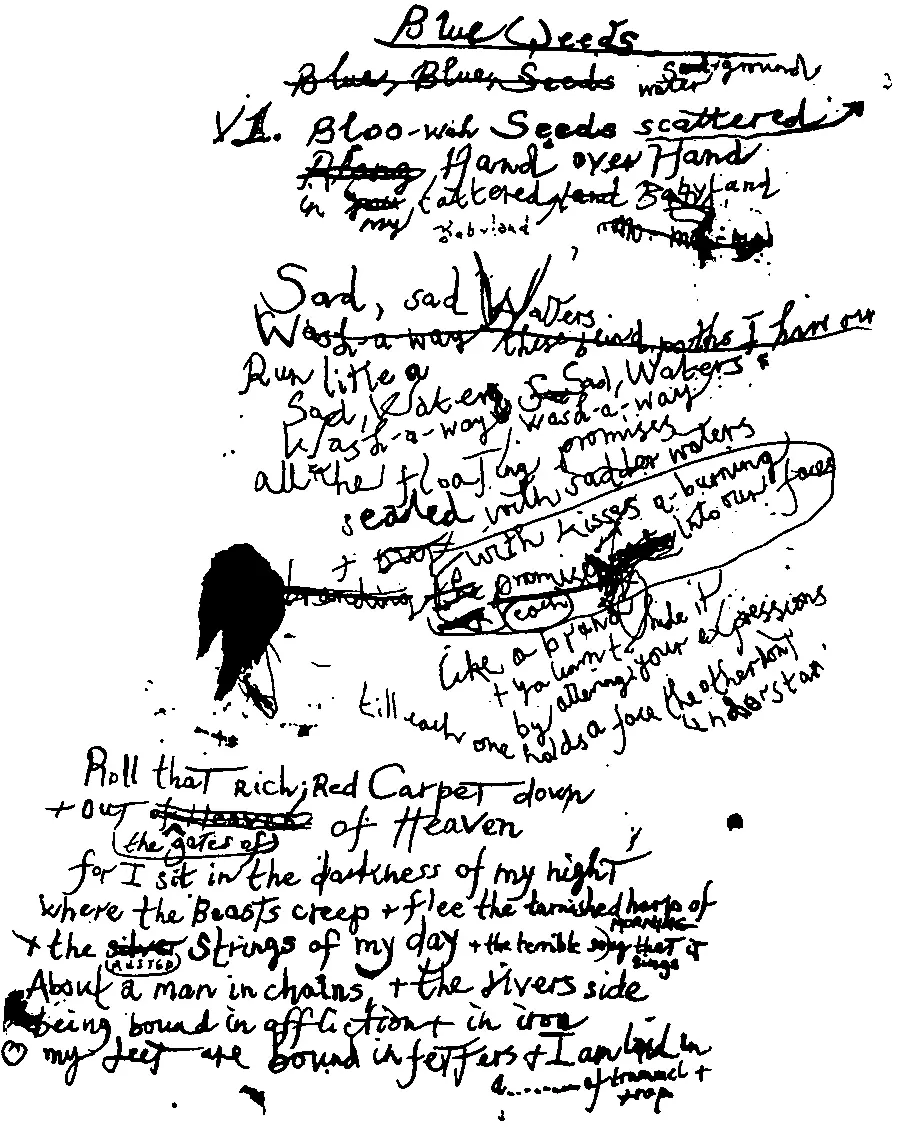 Blue Weeds
Blue, Blue, Seeds ground water
V1. Bloo-wah Seeds scattered
Along Hand over Hand
in my tattered Babyland
Babyland
Sad, sad Waters
Wash-a-way these blind paths I have run
Run like a
Sad, Waters Sad, Waters
Wash-a-way, wash-a-way
all the floating promises
sealed with sadder waters
+ with kisses a-burning
branding the promises into our faces
each
like a brand
+ you learn to hide it
by altering your expressions
till each one holds a face the other don't
understan'
Roll that Rich, Red Carpet down
+ out of Heaven of Heaven
the gates of
for I sit in the darkness of my night
where the Beasts creep + flee the tarnished harp of
+ the silver Strings of my day + the terrible song that it
rusted sings
About a man in chains, + the rivers side
being bound in affliction + in iron
my feet are bound in fetters + I am laid in
a........ of trammel +
trap